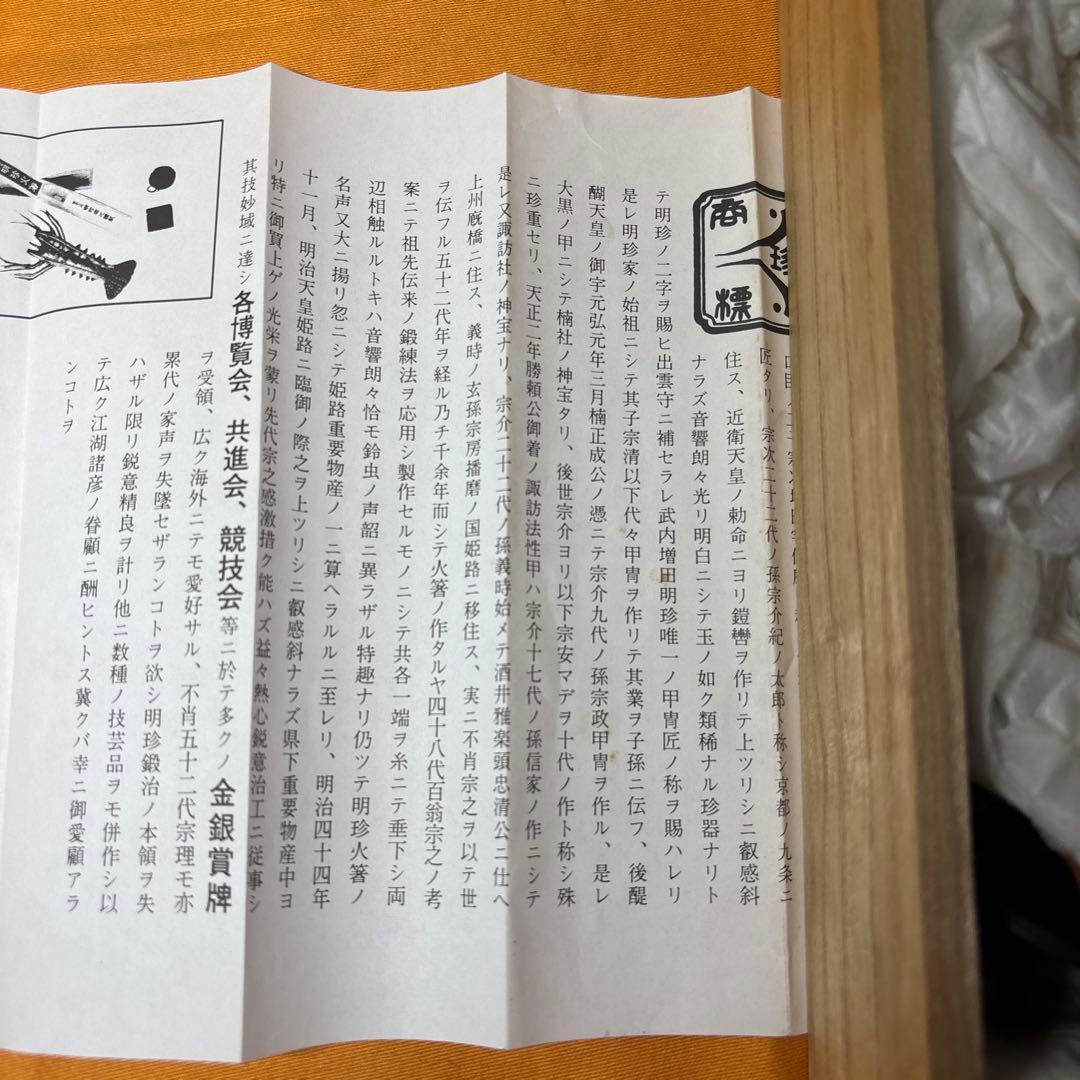 商標
匠タリ、宗次二十二代ノ孫宗介紀ノ太郎ト称シ京都ノ九条ニ
住ス、近衛天皇ノ勅命ニヨリ鎧轡ヲ作リテ上ツリシニ叡感斜
ナラズ音響朗々光リ明白ニシテ玉ノ如ク類稀ナル珍器ナリト
テ明珍ノ二字ヲ賜ヒ出雲守ニ補セラレ武内増田明珍唯一ノ甲冑匠ノ称ヲ賜ハレリ
是レ明珍家ノ始祖ニシテ其子宗清以下代々甲冑ヲ作リテ其業ヲ子孫ニ伝フ、後醍
醐天皇ノ御宇元弘元年三月楠正成公ノ憑ニテ宗介九代ノ孫宗政甲冑ヲ作ル、是レ
大黒ノ甲ニシテ楠社ノ神宝タリ、後世宗介ヨリ以下宗安マデヲ十代ノ作ト称シ殊
ニ珍重セリ、天正二年勝頼公御着ノ諏訪法性甲ハ宗介十七代ノ孫信家ノ作ニシテ
是レ又諏訪社ノ神宝ナリ、宗介二十二代ノ孫義時始メテ酒井雅楽頭忠清公ニ仕ヘ
上州厩橋ニ住ス、義時ノ玄孫宗房播磨ノ国姫路ニ移住ス、実ニ不肖宗之ヲ以テ世
ヲ伝フル五十二代年ヲ経ル乃チ千余年而シテ火箸ノ作タルヤ四十八代百翁宗之ノ考
案ニテ祖先伝来ノ鍛練法ヲ応用シ製作セルモノニシテ共各一端ヲ糸ニテ垂下シ両
辺相触ルルトキハ音響朗々恰モ鈴虫ノ声韶ニ異ラザル特趣ナリ仍ツテ明珍火箸ノ
名声又大ニ揚リ忽ニシテ姫路重要物産ノ一ニ算ヘラルルニ至レリ、明治四十四年
十一月、明治天皇姫路ニ臨御ノ際之ヲ上ツリシニ叡感斜ナラズ県下重要物産中ヨ
リ特ニ御買上ゲノ光栄ヲ蒙リ先代宗之感激措ク能ハズ益々熱心鋭意治工ニ従事シ
其技妙域ニ達シ各博覧会、共進会、競技会等ニ於テ多クノ金銀賞牌
ヲ受領、広ク海外ニテモ愛好サル、不肖五十二代宗理モ亦
累代ノ家声ヲ失墜セザランコトヲ欲シ明珍鍛冶ノ本領ヲ失
ハザル限リ鋭意精良ヲ計リ他ニ数種ノ技芸品ヲモ併作シ以
テ広ク江湖諸彦ノ眷顧ニ酬ヒントス冀クバ幸ニ御愛顧アラ
ンコトヲ